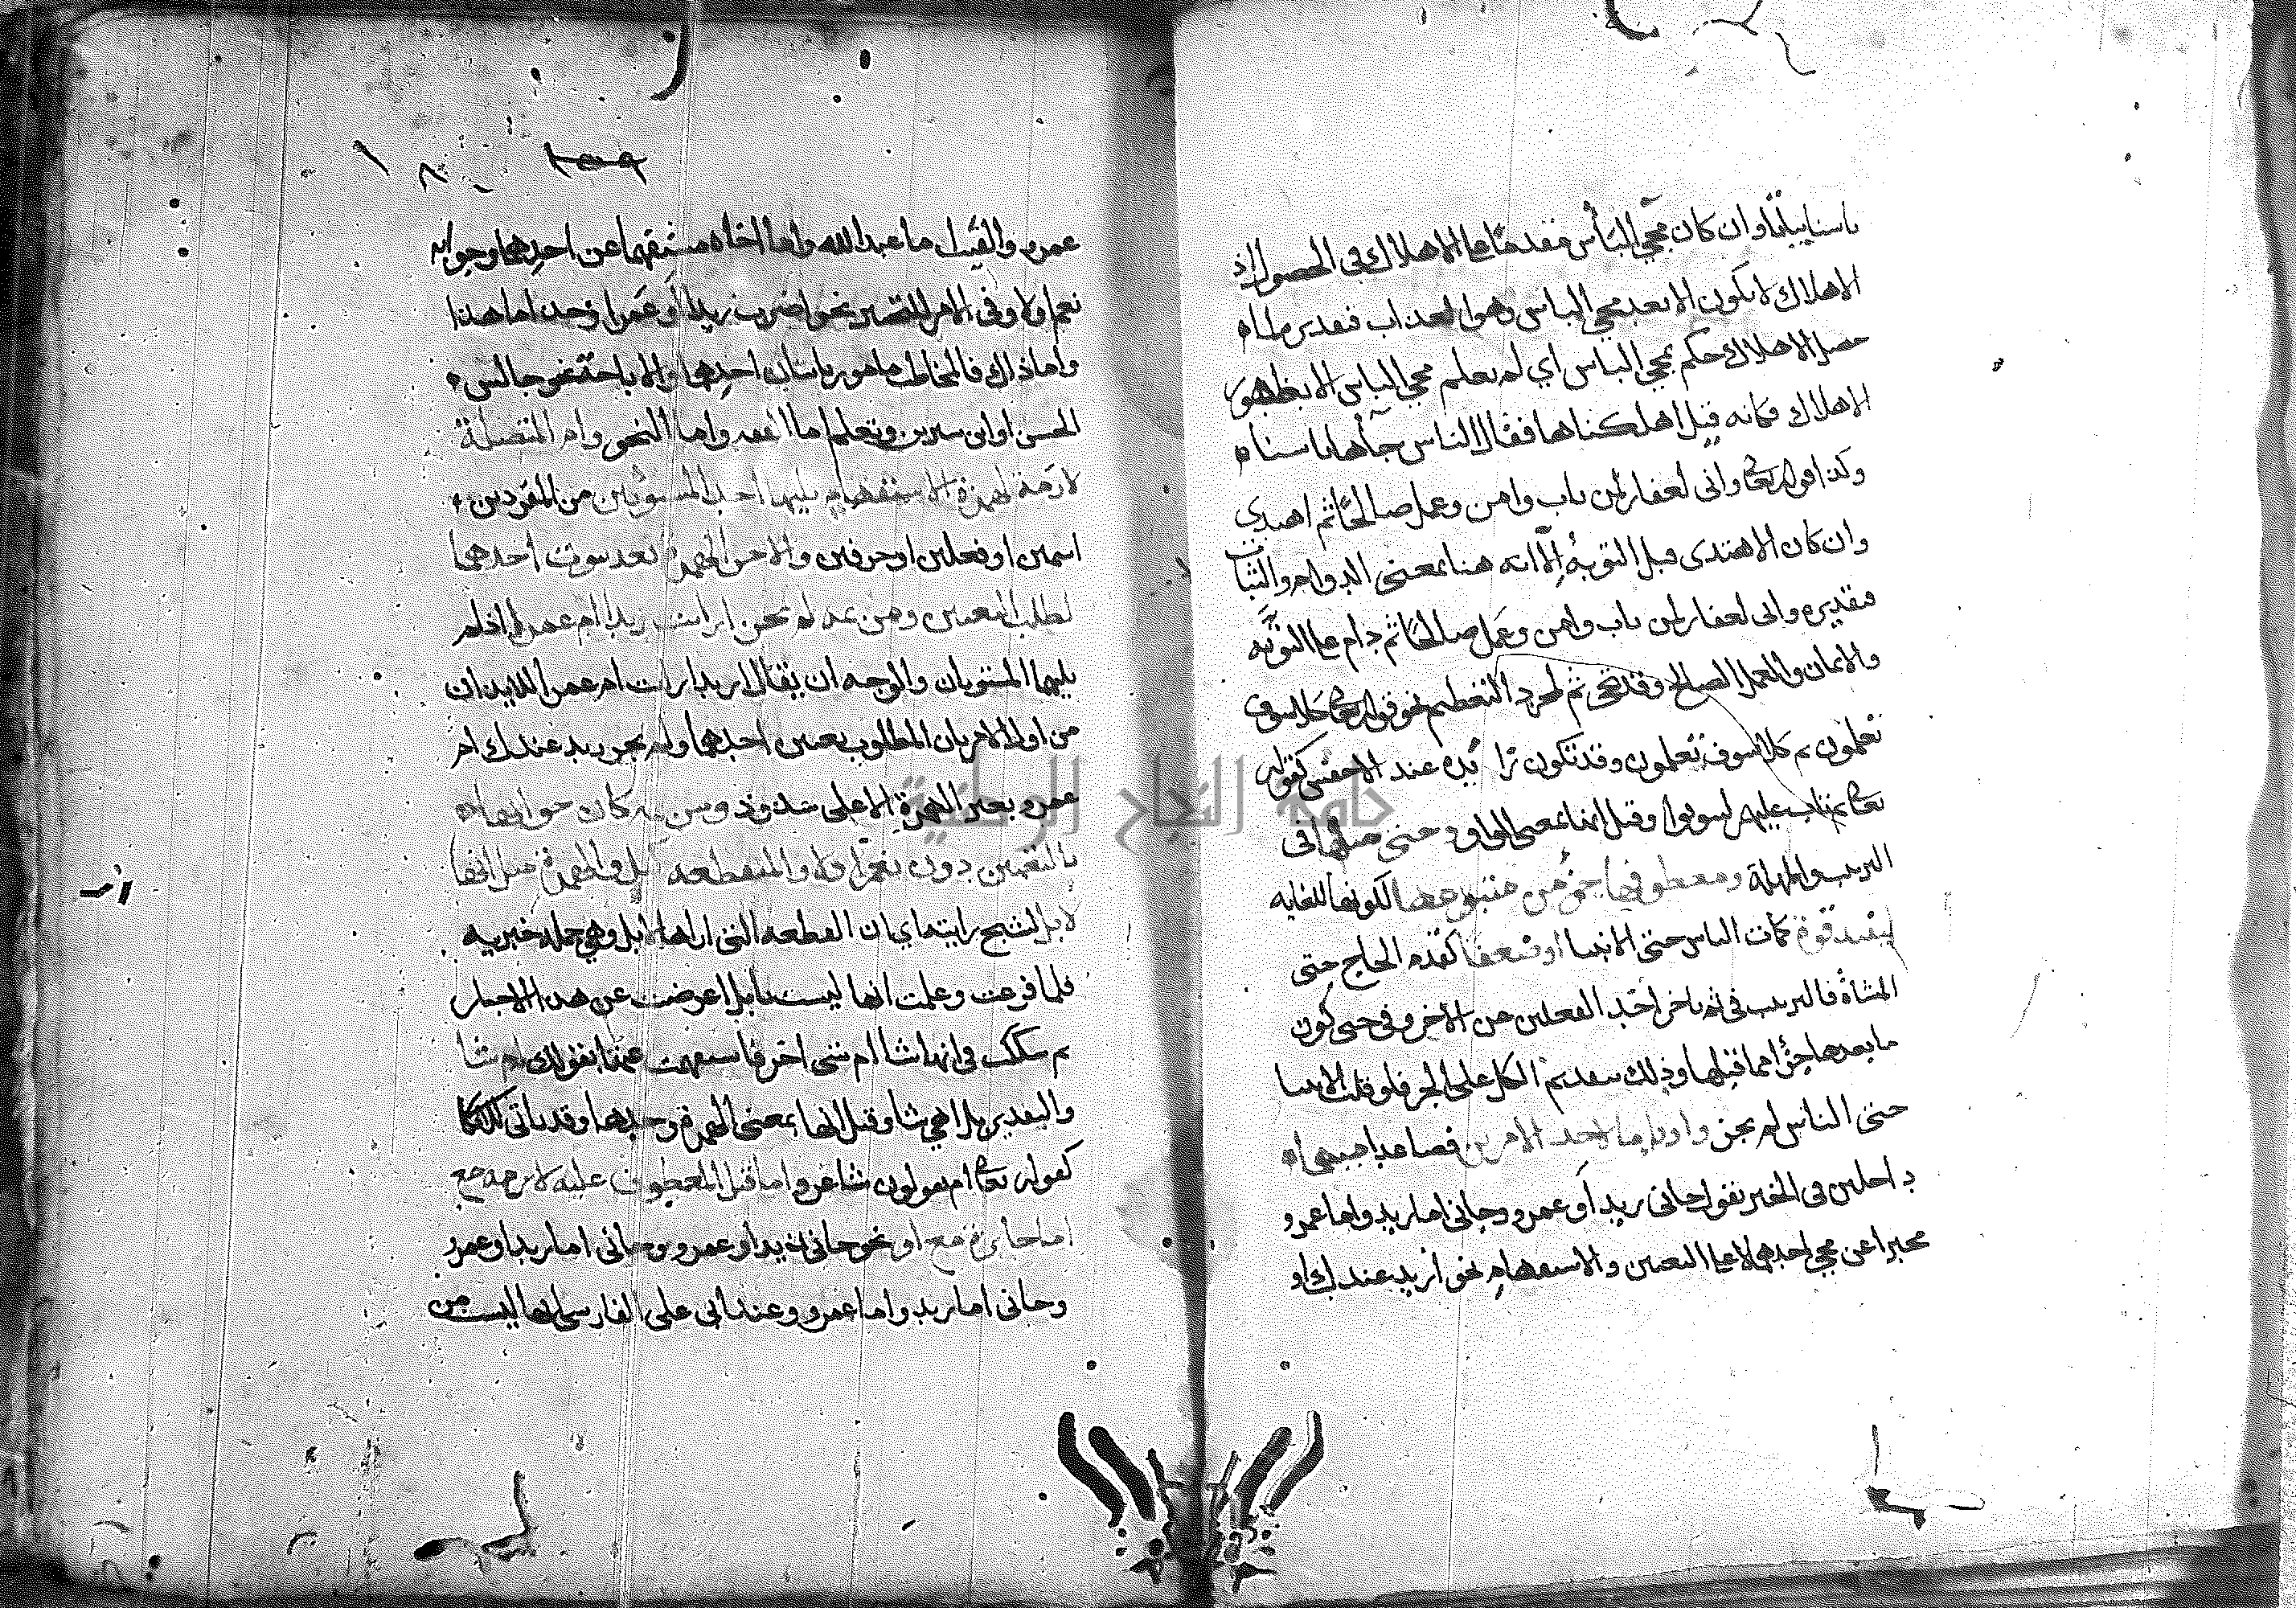 باسنا بياتا وان كان مجي البأس مقدما على الاهلاك في الحصول اذ
الاهلاك لا يكون الا بعد مجي الباس وهو العذاب فتقديره لما
حصل الاهلاك حكم بمجي الباس اي لم يعلم مجي الباس الا بظهور
الاهلاك فكانه قيل اهلكناها فقال الناس جآها باسنا
وكذا قوله تعا واني لغفار لمن تاب وامن وعمل صالحا ثم اهتدي
وان كان الاهتدى قبل التوبة الا انه هنا بمعنى الدوام والثبات
فتقديره واني لغفار لمن تاب وامن وعمل صالحا ثم دام على التوبه
والايمان والعمل الصالح وقد تجي ثم لمجرد التعظيم نحو قوله تعا كلا سوف
تعلمون ثم كلا سوف تعلمون وقد تكون زائده عند الاخفش كقوله
تعا ثم تاب عليهم ليتوبوا وقيل انها بمعنى الواو وحتى مثلها في
الترتيب والمهلة ومعطوفها جزؤ من متبوعها لكونها للغايه
ليفيد قوة كمات الناس حتى الانبيا او ضعفا كقدم الحاج حتى
المشاة فالترتيب في ثم تاخر احد الفعلين من الاخر وفي حتى كون
ما بعدها جزا مما قبلها وذلك بتقديم الكل على الجز فلو قلت الانبيا
حتى الناس لم يجز واو واما لاحد الامرين فصاعدا مبهما
داخلين في الخبر تقول جاني زيد او عمرو وجاني اما زيد واما عمرو
مخبرا عن مجي احدهما لا على التعيين والاستفهام نحو ازيد عندك او
عمرو والقيت اما عبد الله واما اخاه مستفهما عن احدهما وجوابه
نعم اولا وفي الامر للتخيير نحو اضرب زيدا او عمرا وخذ اما هذا
واما ذاك فالمخاطب مامور باتيان احدهما والاباحة نحو جالس
الحسن او ابن سيرين وتعلم اما الفقه واما النحو وام المتصلة
لازمة لهمزة الاستفهام يليها احد المستويين من المفردين
اسمين او فعلين او حرفين والاخر الهمزة بعد ثبوت احدهما
لطلب التعيين ومن ثم لم يجز ارايت زيدا ام عمرا اذ لم
يليهما المستويان والوجه ان يقال ازيدا رايت ام عمرا للايذان
من اول الامر بان المطلوب تعيين احدهما ولم يجز زيد عندك ام
عمرو بغير الهمزة الا على شذوذ ومن ثم كان جوابها
بالتعيين دون نعم اولا والمنقطعه كبل والهمزة مثل انها
لابل لشبح رايته اي ان القطعه التي اراها لابل وهي جملة خبريه
فلما قربت وعلمت انها ليست بابل اعرضت عن هذا الاخبار
ثم شككت في انها شا ام شي اخر فاستفهمت عنها بقولك ام شا
والتقدير بل اهي شا وقيل انها بمعنى الهمزة وحدها وقد تاتي كذلك
كقوله تعا ام يقولون شاعر واما قبل المعطوف عليه لازمه مع
اما جائزة مع او نحو جاني زيد او عمرو وجاني اما زيد او عمرو
وجاني اما زيد واما عمرو وعند ابي علي الفارسي انها ليست من
جامعة النجاح الوطنية